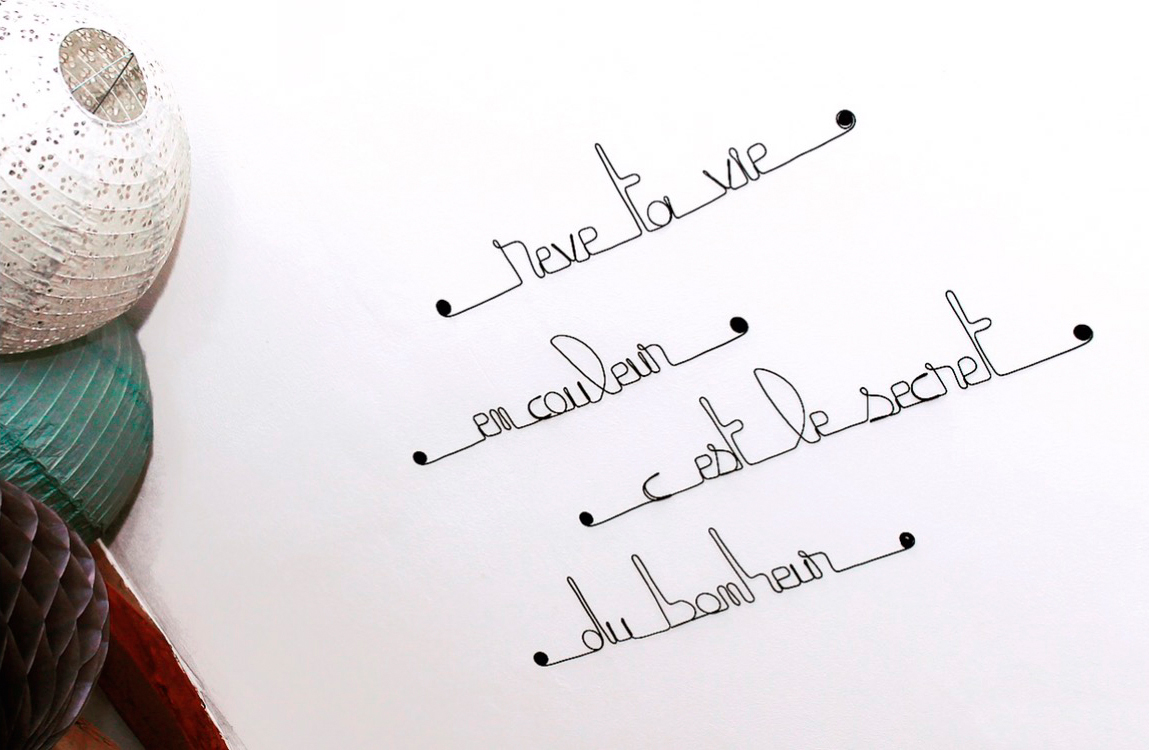 reve ta vie
en couleur
c'est le secret
du bonheur